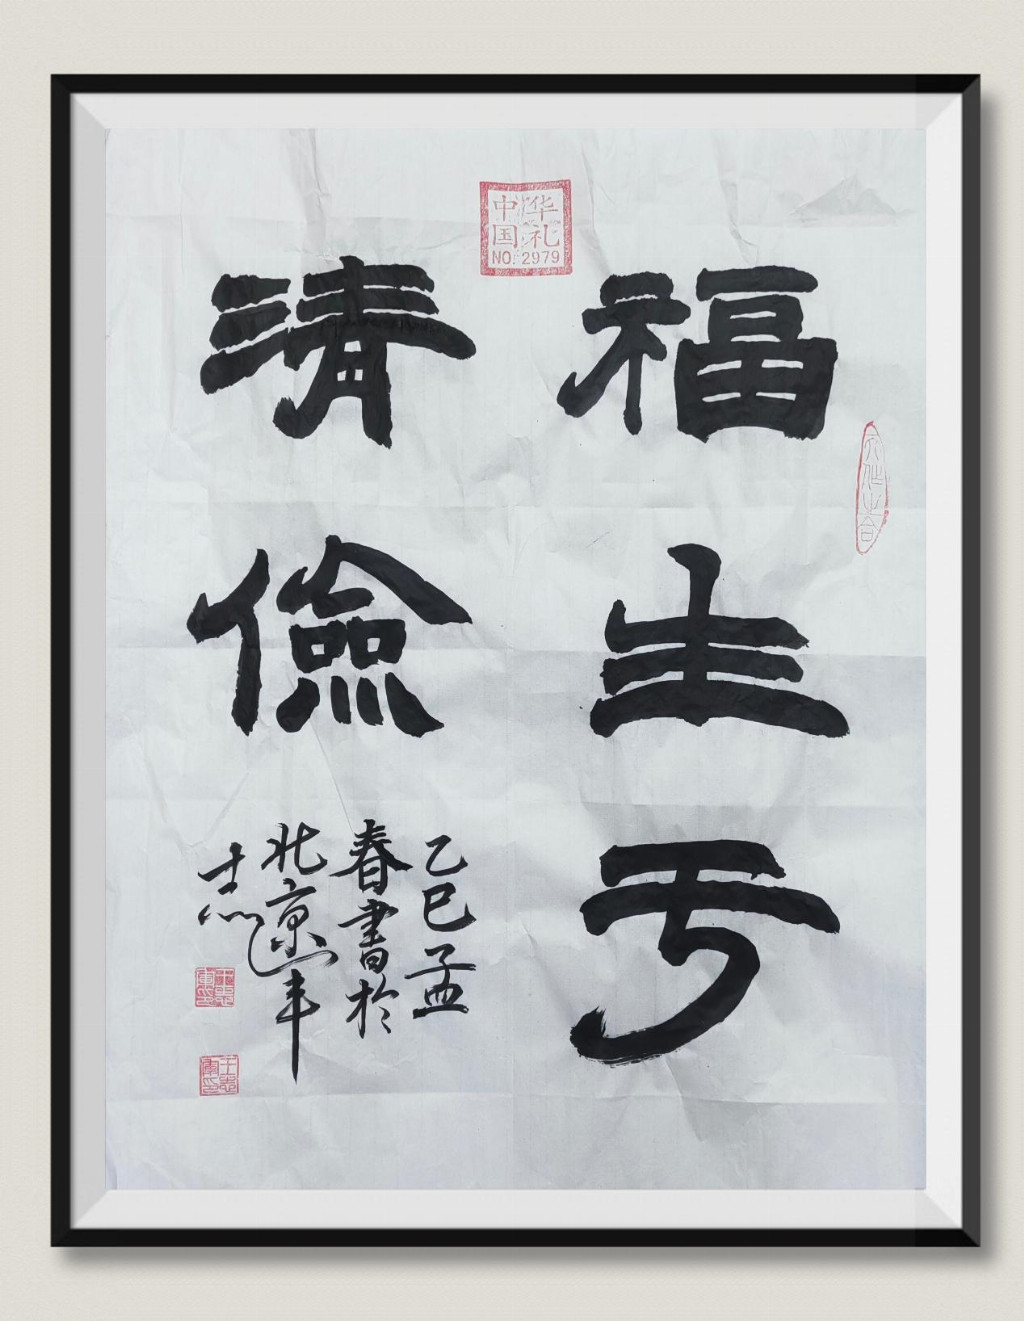 福生于
清儉
乙巳孟
春書於
北京連年
志
华礼
中国
NO.2979